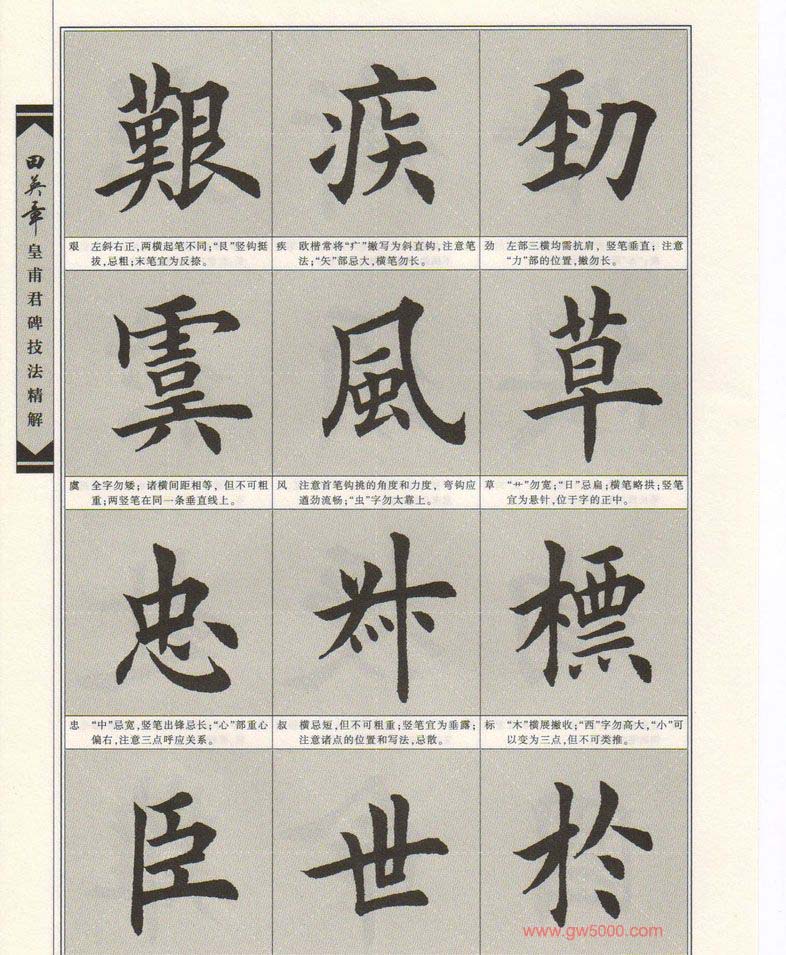 田英章 皇甫君碑技法精解
勁
劲 左部三横均需抗肩，竖笔垂直；注意
“力”部的位置，撇勿长。
草
草 “艹”勿宽；“日”忌扁；横笔略拱；竖笔
宜为悬针，位于字的正中。
標
标 “木”横展撇收；“西”字勿高大，“小”可
以变为三点，但不可类推。
於
疾
疾 欧楷常将“疒”撇写为斜直钩，注意笔
法；“矢”部忌大，横笔勿长。
風
风 注意首笔钩挑的角度和力度，弯钩应
遒劲流畅；“虫”字勿太靠上。
叔
叔 横忌短，但不可粗重；竖笔宜为垂露；
注意诸点的位置和写法，忌散。
世
艱
艰 左斜右正，两横起笔不同；“艮”竖钩挺
拔，忌粗；末笔宜为反捺。
虞
虞 全字勿矮；诸横间距相等，但不可粗
重；两竖笔在同一条垂直线上。
忠
忠 “中”忌宽，竖笔出锋忌长；“心”部重心
偏右，注意三点呼应关系。
臣
www.gw5000.com